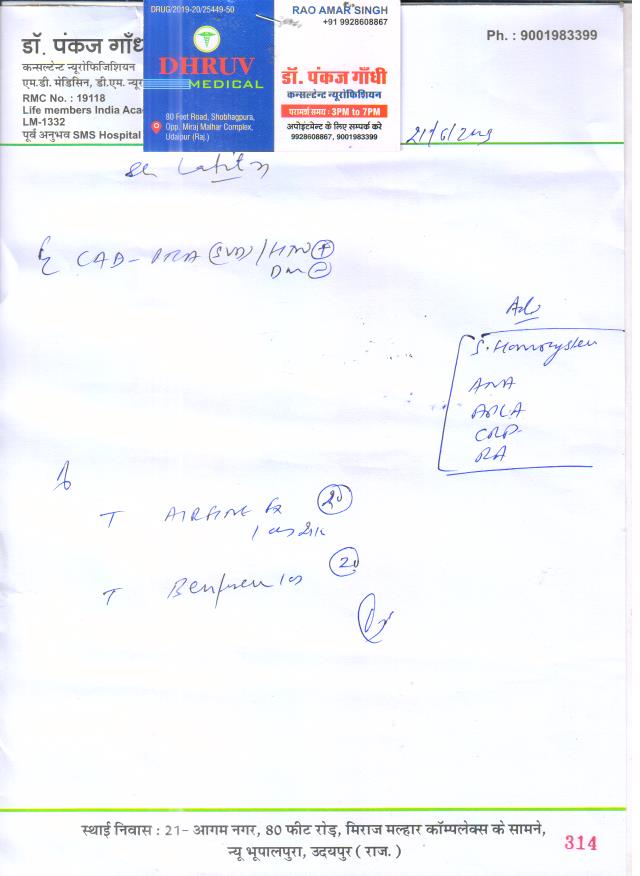 DRUG/2019-20/25449-50
DHRUV
MEDICAL
80 Feet Road, Shobhagpura,
Opp. Miraj Malhar Complex,
Udaipur (Raj.)
RAO AMAR SINGH
+91 9928608867
डॉ. पंकज गाँधी
कन्सल्टेन्ट न्यूरोफिशियन
परामर्श समय : 3PM to 7PM
अपोइंटमेन्ट के लिए सम्पर्क करे
9928608867, 9001983399
डॉ. पंकज गाँध
कन्सल्टेन्ट न्यूरोफिजिशियन
एम.डी. मेडिसिन, डी.एम. न्यूर
RMC No. : 19118
Life members India Aca
LM-1332
पूर्व अनुभव SMS Hospital
Ph. : 9001983399
CAD- (SVD) / HTN +
DM -
Adv
S. Homocystein
ANA
APLA
CRP
RA
T
20
T
20
स्थाई निवास : 21- आगम नगर, 80 फीट रोड़, मिराज मल्हार कॉम्पलेक्स के सामने,
न्यू भूपालपुरा, उदयपुर ( राज. )
314